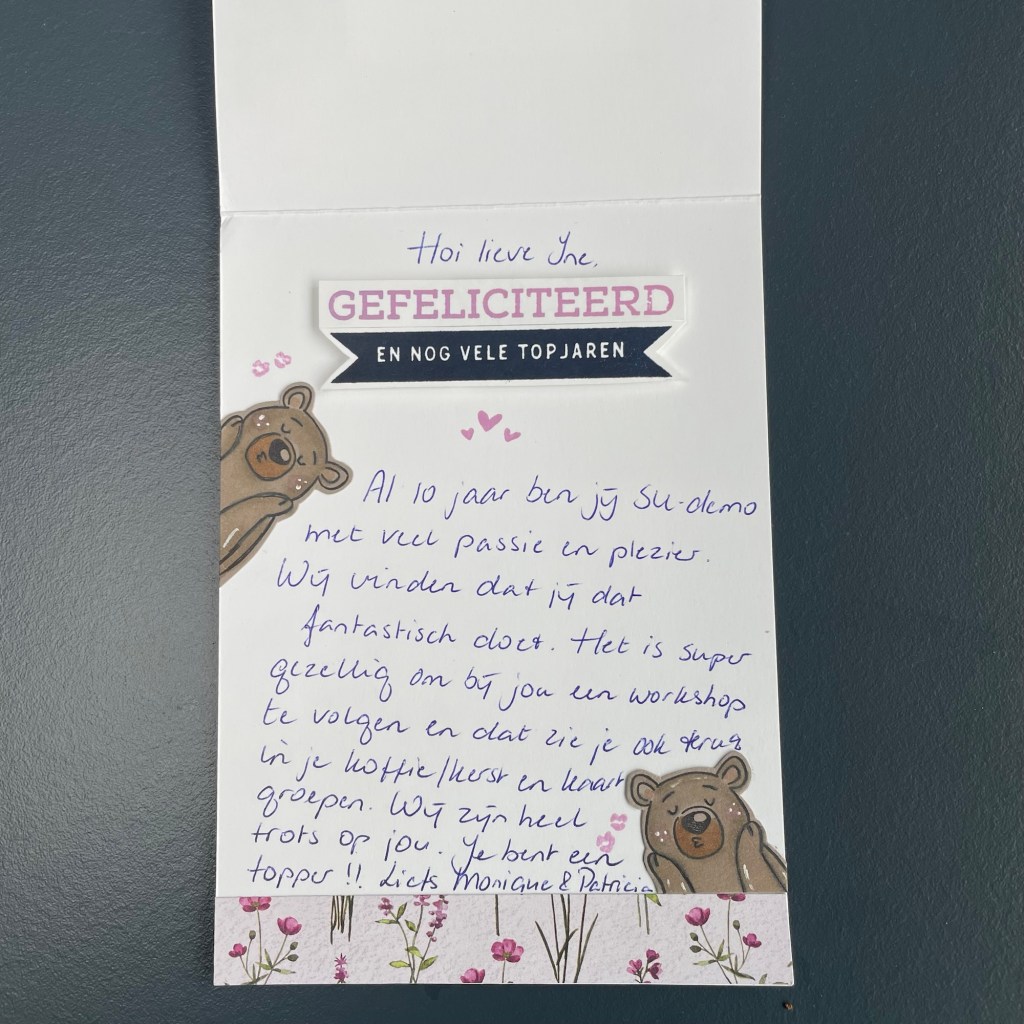 Hoi lieve Yne,
GEFELICITEERD
EN NOG VELE TOPJAREN
Al 10 jaar ben jij SU-demo
met veel passie en plezier.
Wij vinden dat jij dat
fantastisch doet. Het is super
gezellig om bij jou een workshop
te volgen en dat zie je ook terug
in je koffie/kerst en kaart
groepen. Wij zijn heel
trots op jou. Je bent een
topper !! Liefs Monique & Patricia